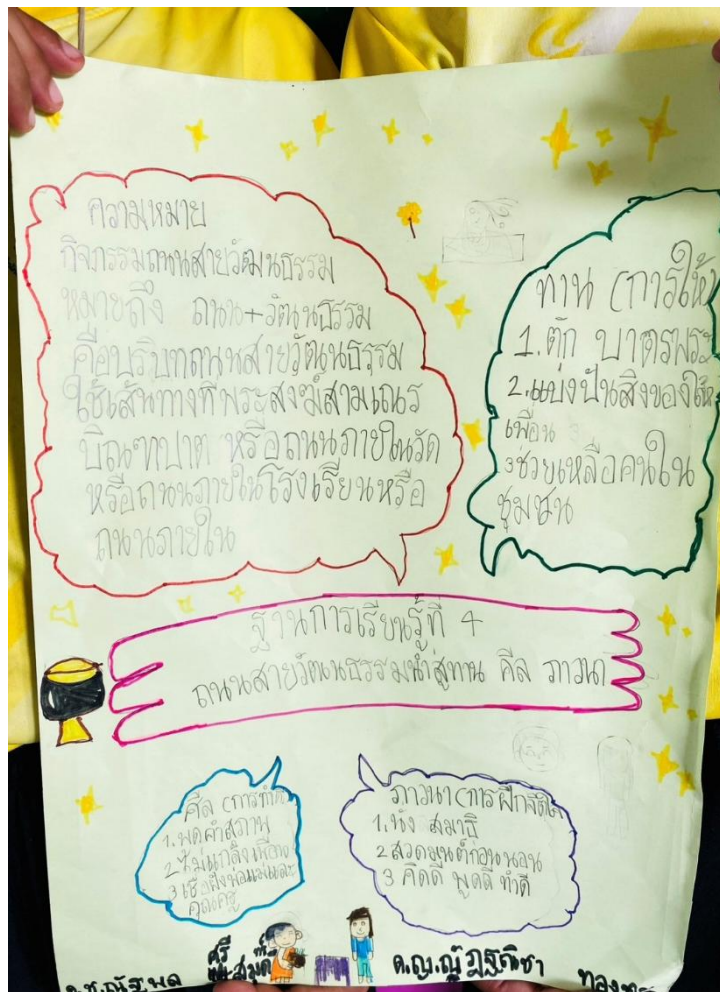 ความหมาย
กิจกรรมถนนสายวัฒนธรรม
หมายถึง ถนน+วัฒนธรรม
คือบริบทถนนสายวัฒนธรรม
ใช้เส้นทางที่พระสงฆ์สามเณร
บิณฑบาต หรือถนนภายในวัด
หรือถนนภายในโรงเรียนหรือ
ถนนภายใน
ทาน (การให้)
1.ตัก บาตรพระ
2.แบ่งปันสิ่งของให้
เพื่อน
3ช่วยเหลือคนใน
ชุมชน
ฐานการเรียนรู้ที่ 4
ถนนสายวัฒนธรรมนำสู่ทาน ศีล ภาวนา
ศีล (การทำ
1.พูดคำสุภาพ
2 ไม่แกล้งเพื่อน
3 เชื่อฟังพ่อแม่และ
คุณครู
ภาวนา(การฝึกจิต
1.นั่ง สมาธิ
2 สวดมนต์ก่อนนอน
3 คิดดี พูดดี ทำดี
ด.ช.ณัฐพล
ด.ญ.ณัฏฐณิชา